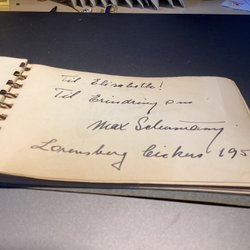 Til Elisabeth!
Til Erindring om
Max Schumann
Lorensberg Cirkus 195